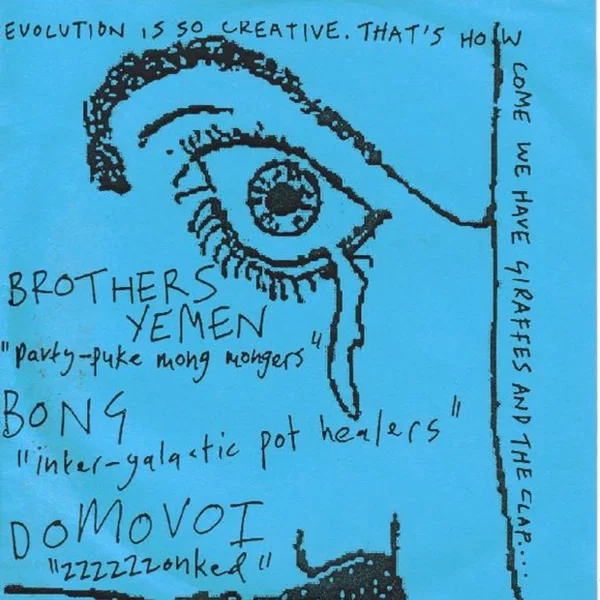 EVOLUTION IS SO CREATIVE. THAT'S HOW
COME WE HAVE GIRAFFES AND THE CLAP....
BROTHERS
YEMEN
"party-puke mong mongers"
BONG
"inter-galactic pot healers"
DOMOVOI
"zzzzzzonked"